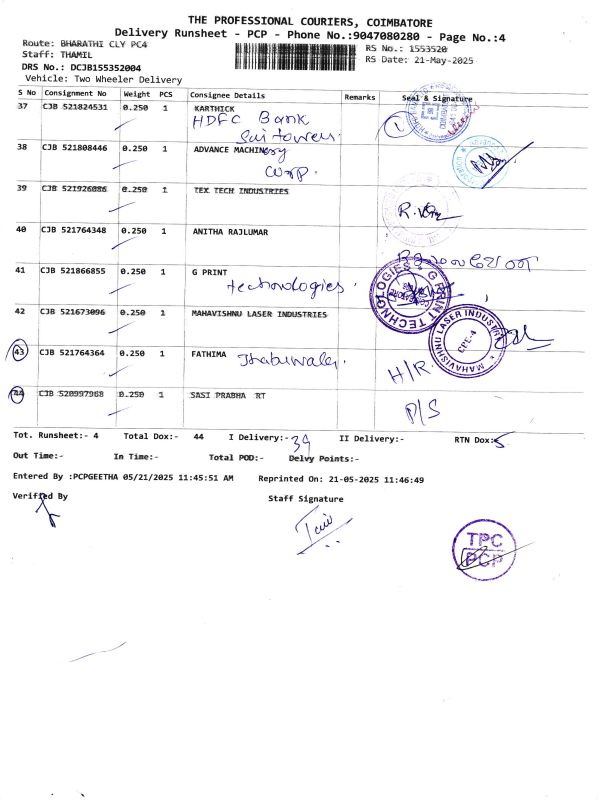 THE PROFESSIONAL COURIERS, COIMBATORE
Delivery Runsheet - PCP - Phone No.:9047080280 - Page No.:4
Route: BHARATHI CLY PC4
RS No.: 1553520
Staff: THAMIL
RS Date: 21-May-2025
DRS No.: DCJB155352004
Vehicle: Two Wheeler Delivery
S No Consignment No Weight PCS Consignee Details Remarks Seal & Signature
37 CJB 521824531 0.250 1 KARTHICK
HDFC Bank
Sai towers.
1
38 CJB 521808446 0.250 1 ADVANCE MACHINERY
Corp.
39 CJB 521926086 0.250 1 TEX TECH INDUSTRIES
40 CJB 521764348 0.250 1 ANITHA RAJLUMAR
41 CJB 521866855 0.250 1 G PRINT
technologies.
G PRINT TECHNOLOGIES
COIMBATORE
42 CJB 521673096 0.250 1 MAHAVISHNU LASER INDUSTRIES
MAHAVISHNU LASER INDUSTRIES
CBE-4
43 CJB 521764364 0.250 1 FATHIMA
H/R.
44 CJB 520997968 0.250 1 SASI PRABHA RT
P/S
Tot. Runsheet:- 4 Total Dox:- 44 I Delivery:- 39 II Delivery:- RTN Dox:- 5
Out Time:- In Time:- Total POD:- Delvy Points:-
Entered By :PCPGEETHA 05/21/2025 11:45:51 AM Reprinted On: 21-05-2025 11:46:49
Verified By
Staff Signature
TPC
PCP